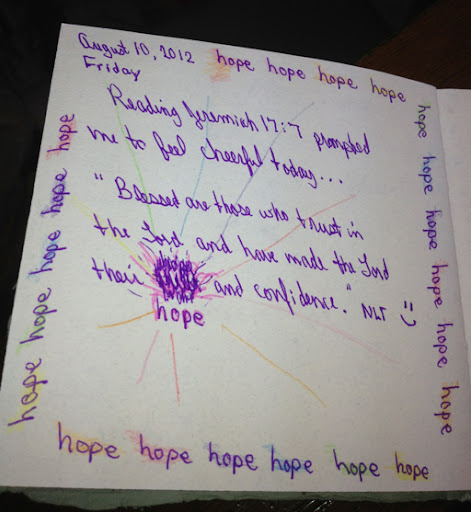 August 10, 2012
Friday
hope hope hope hope
hope hope hope hope hope hope
Reading Jeremiah 17:7 prompted
me to feel cheerful today...
"Blessed are those who trust in
the Lord and have made the Lord
their and confidence." NLT
hope
hope hope hope hope hope
hope hope hope hope hope hope